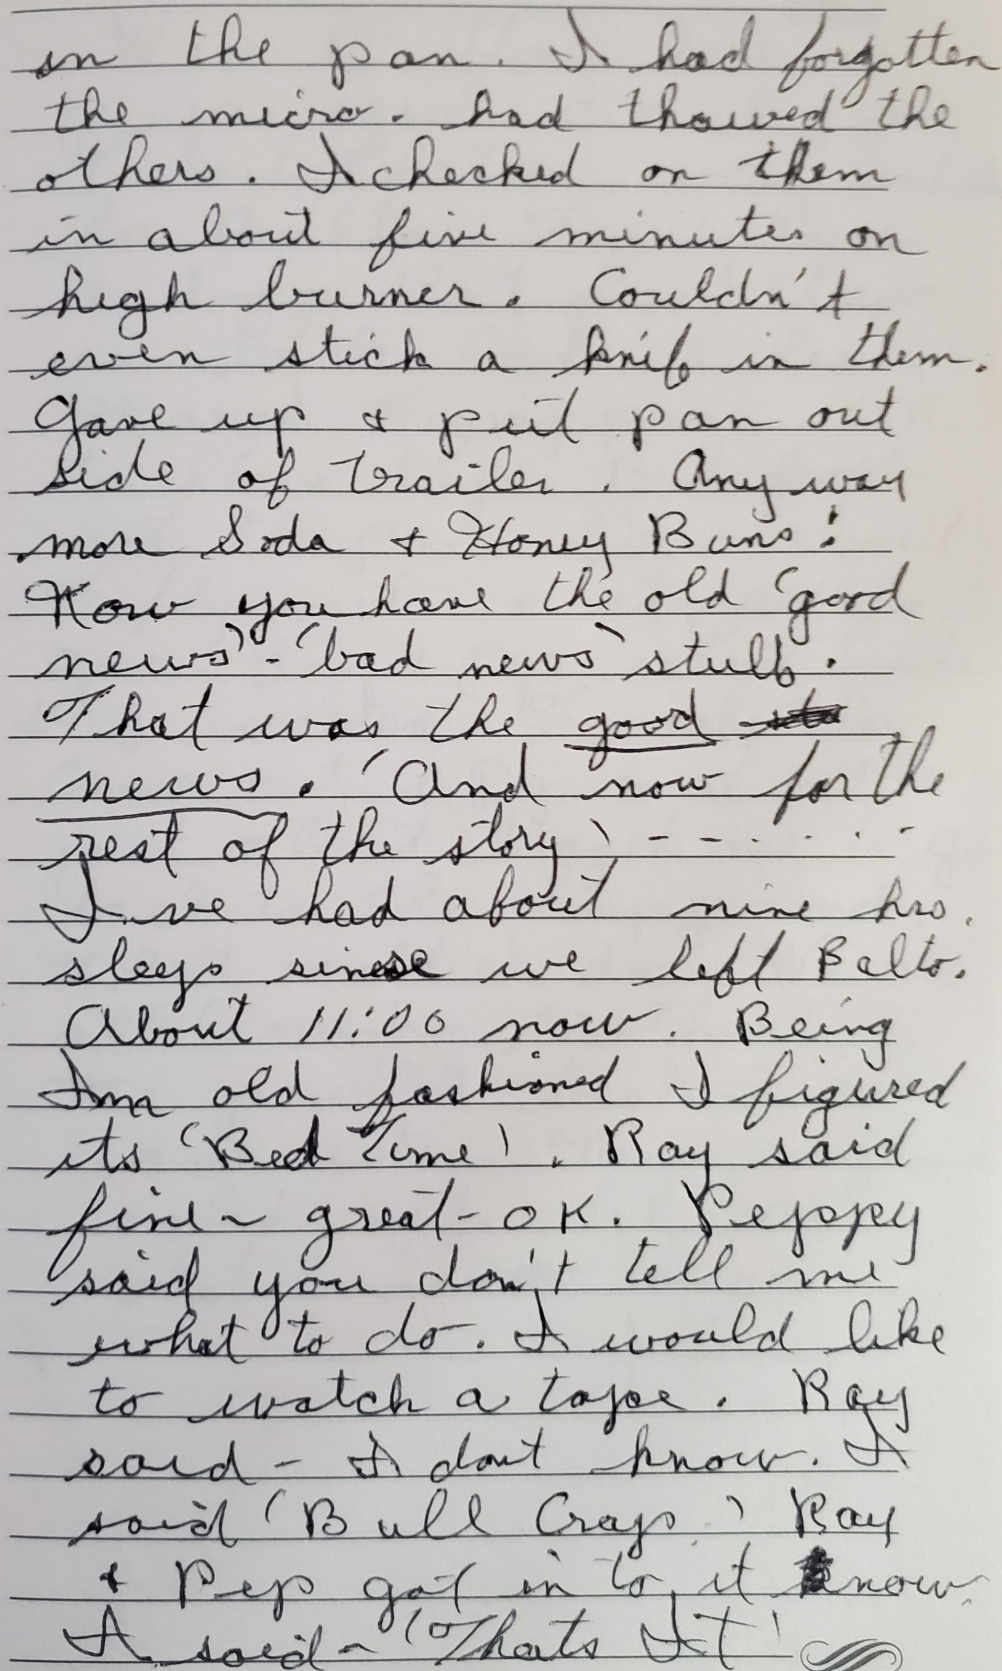 in the pan. I had forgotten
the micro. had thawed the
others. I checked on them
in about five minutes on
high burner. Couldn't
even stick a knif in them.
Gave up & put pan out
side of trailer. Any way
more Soda & Honey Buns!
Now you have the old 'good
news' - 'bad news' stuff.
That was the good
news. 'And now for the
rest of the story' - - - - - -
I've had about nine hrs.
sleep sinse we left Balto.
About 11:00 now. Being
Im old fashioned I figured
its 'Bed Time'. Ray said
fine - great - OK. Peppy
said you don't tell me
what to do. I would like
to watch a tape. Ray
said - I dont know. I
said 'Bull Crap.' Ray
& Pep got in to it now.
I said - 'Thats It'